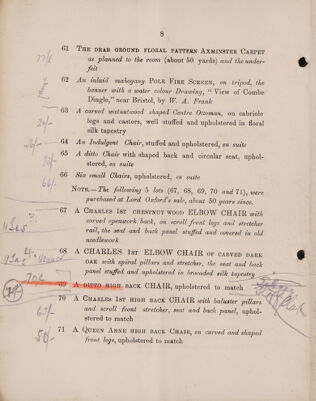 8
61 THE DRAB GROUND FLORAL PATTERN AXMINSTER CARPET
as planned to the room (about 50 yards) and the under-
felt
62 An inlaid mahogany POLE FIRE SCREEN, on tripod, the
banner with a water colour Drawing, "View of Combe
Dingle," near Bristol, by W. A. Frank
63 A carved walnutwood shaped Centre Ottoman, on cabriole
legs and castors, well stuffed and upholstered in floral
silk tapestry
64 An Indulgent Chair, stuffed and upholstered, en suite
65 A ditto Chair with shaped back and circular seat, uphol-
stered, en suite
66 Six small Chairs, upholstered, en suite
NOTE.—The following 5 lots (67, 68, 69, 70 and 71), were
purchased at Lord Oxford's sale, about 50 years since.
67 A CHARLES 1ST CHESTNUT WOOD ELBOW CHAIR with
carved openwork back, on scroll front legs and stretcher
rail, the seat and back panel stuffed and covered in old
needlework
68 A CHARLES 1ST ELBOW CHAIR OF CARVED DARK
OAK with spiral pillars and stretcher, the seat and back
panel stuffed and upholstered in brocaded silk tapestry
69 A DITTO HIGH BACK CHAIR, upholstered to match
70 A CHARLES 1ST HIGH BACK CHAIR with baluster pillars
and scroll front stretcher, seat and back panel, uphol-
stered to match
71 A QUEEN ANNE HIGH BACK CHAIR, on carved and shaped
front legs, upholstered to match